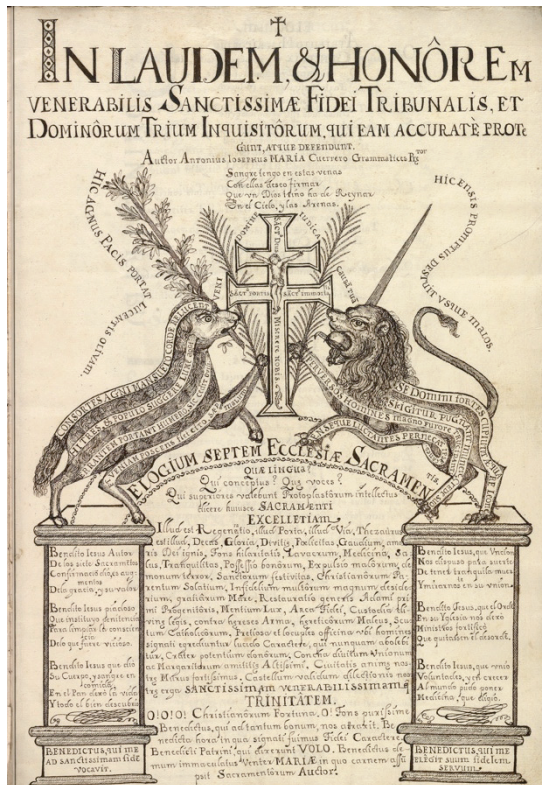 IN LAUDEM, & HONÔREM
VENERABILIS SANCTISSIMÆ FIDEI TRIBUNALIS, ET
DOMINÔRUM TRIUM INQUISITÔRUM, QUI EAM ACCURATÈ PROTE
GUNT, ATQUE DEFENDUNT.
Auctor Antonius Iosephus MARIA Guerrero Grammatices Pr.tor
Sangre tengo en estas venas
Con ellas deseo firmar
Que un Dios Trino ha de Reynar
En el Cielo, y las Arenas.
HIC AGNUS PACIS PORTAT LUCENTIS OLIVAM.
HIC ENSIS PROMPTUS DESTRUIT AUSA MALOS.
DOMINE
IUDICA
SANCT DEUS
SANCT FORTIS
SANCT IMMORTA
Miserere nobis
CONSORTES AGNI MANSUE CORDE RELUCENT
SE DOMINI FORTES
SI IGITUR PUGNANT
PERVERSOS HOMINES magno furore
ELOGIUM SEPTEM ECCLESIÆ SACRAMEN
tis.
QUÆ LINGUA!
Qui conceptus? Quæ voces?
Qui superiores valebunt Protoplastorum intellectus
dicere huiusce SACRAMENTI
EXCELLETIAM.
Illud est Regeneratio, illud Porta, illud Via, Thezaurus
est illud, Decus, Gloria, Divitiæ, Possessio, Gaudium, am
ris Dei ignis, Fons hilaritatis, Lavacrum, Medicina, Sa
lus, Tranquilitas, Possessio bonorum, Expulsio malorum, dæ
monum terror, Sanctorum festivitas, Christianorum Pa
rentum Solatium, Infidelium multorum magnum deside
rium, gratiarum Mare, Restauratio generis Adami pri
mi Progenitoris, Mentium Lux, Arca Fidei, Custodia di
vinæ legis, contra hereses Arma, hereticorum Maleus, Scu
tum Catholicorum, Pretiosa et locuples officina ubi homines
signati egrediuntur lucido Caractere, qui nunquam abolebi
tur, Crater potentium donorum, Concha divitum Unionum
ac Margaritarum amabilis Altissimi, Civitatis animæ nos
træ Murus fortissimus, Castellum validum dilectionis nos
træ ergo SANCTISSIMAM VENERABILISSIMAMQ
TRINITATEM.
O! O! O! Christianorum Fortuna, O! Fons purissime
Benedictus, qui ad tantum bonum, nos atraxit, Be
nedicta hora in qua signati fuimus Fidei Caractere,
Benedicti Patrini, qui dixerunt VOLO, Benedictus de
mum immaculatus Venter MARIÆ in quo carnem assu
psit Sacramentorum Auctor!
Bendito Iesus Autor
De los siete Sacramtos
Confirmacio dio, es aug
mentos
Dela gracia, y su valor
Bendito Iesus piadoso
Que instituyo penitencia
Para limpiar la conscien
cia
Delo que fuere vicioso.
Bendito Iesus que dio
Su Cuerpo, y sangre en
comida,
En el Pan dexò la vida
Y todo el bien descubrio
BENEDICTUS, qui me
AD SANCTISSIMAM FIDE
VOCAVIT.
Bendito Iesus, que Uncion
Nos dispuso para suerte
De tener tranquila muerte
Y mirarnos en su union.
Bendito Iesus, que el Orden
En su Iglesia nos dexo
Ministros fortificò
Que quitassen el desorden.
Bendito Iesus, que unio
Voluntades, y en crecer
Al mundo pudo poner
Medicina, que eligio.
BENEDICTUS, qui me
ELEGIT SUUM FIDELEM
SERVUM.